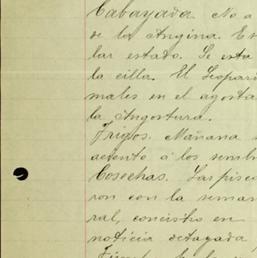 Cabayada. No a
de la Angina. En
lar estado. Se esta
la cilla. El Leopar
males en el agosta
la Angostura.
Trigos. Mañana
atento á los sembr
Cosechas. Las pisco
ron con la seman
ral, concistro en
noticia octagada,